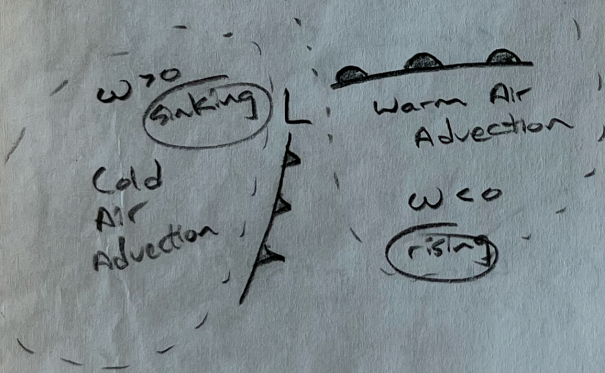 ω>0
sinking
L
Cold
Air
Advection
Warm Air
Advection
ω<0
rising